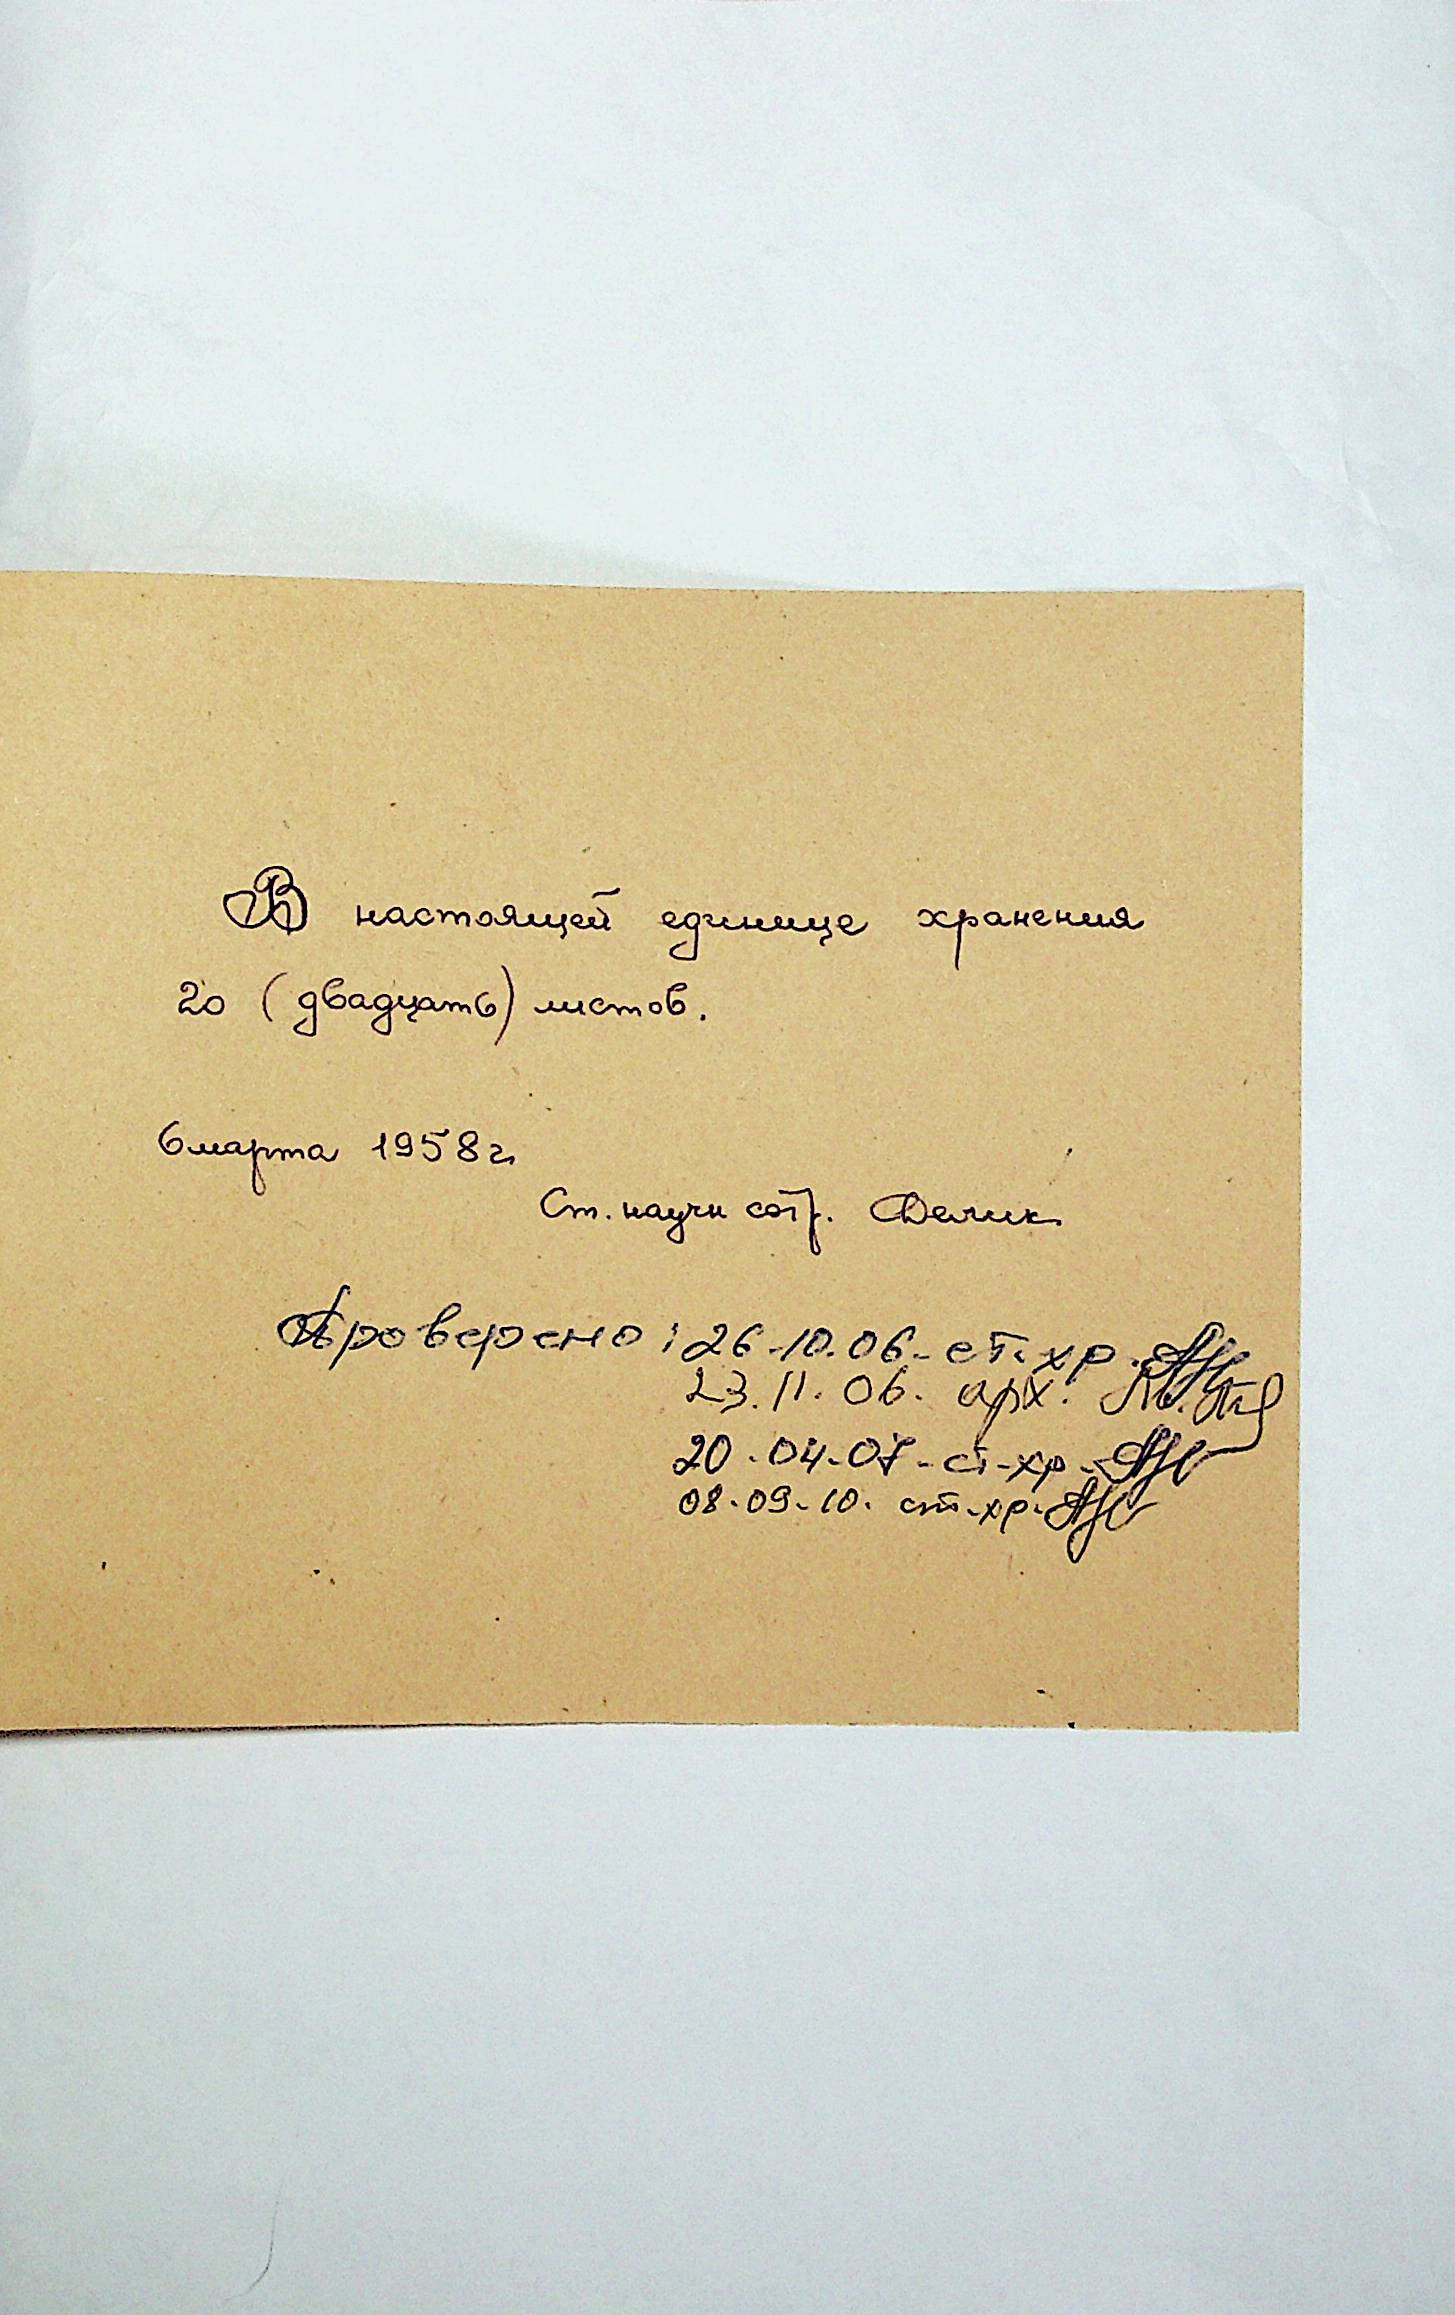 В настоящей единице хранения
20 (двадцать) листов.
6 марта 1958 г.
Ст. научн сотр. Делик
Проверено: 26.10.06 - ст. хр.
23.11.06. арх.
20.04.07 - ст-хр.
08.09.10. ст.хр.